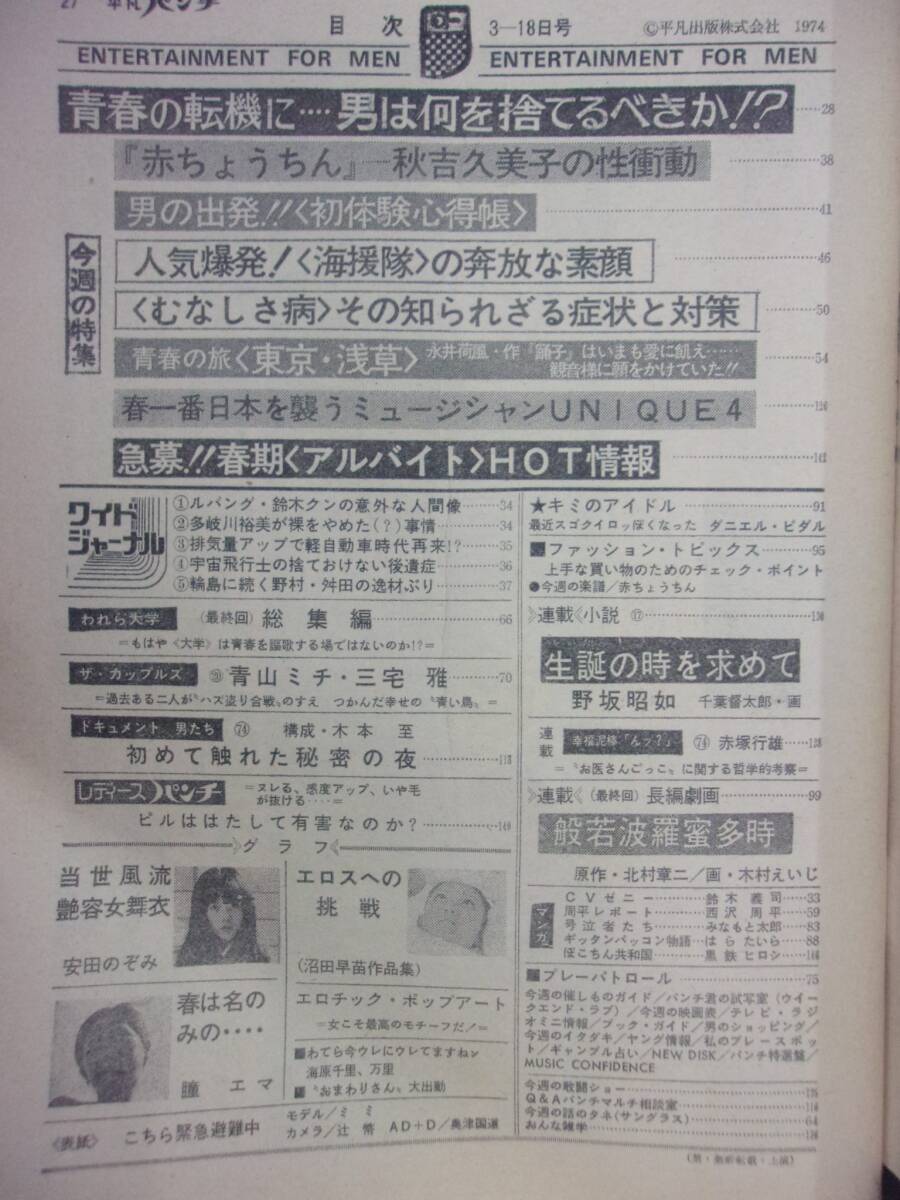 27 平凡パンチ
目次
3—18日号
©平凡出版株式会社 1974
ENTERTAINMENT FOR MEN
ENTERTAINMENT FOR MEN
今週の特集
青春の転機に‥‥男は何を捨てるべきか!? ……28
『赤ちょうちん』—秋吉久美子の性衝動 ……38
男の出発!!〈初体験心得帳〉 ……41
人気爆発!〈海援隊〉の奔放な素顔 ……46
〈むなしさ病〉その知られざる症状と対策 ……50
青春の旅〈東京・浅草〉 永井荷風・作『踊子』はいまも愛に飢え…… 観音様に願をかけていた!! ……54
春一番日本を襲うミュージシャンUNIQUE4 ……120
急募!!春期〈アルバイト〉HOT情報 ……142
ワイドジャーナル
①ルバング・鈴木クンの意外な人間像……34
②多岐川裕美が裸をやめた(?)事情……34
③排気量アップで軽自動車時代再来!?……35
④宇宙飛行士の捨てておけない後遺症……36
⑤輪島に続く野村・舛田の逸材ぶり……37
われら大学 (最終回) 総集編……66
=もはや〈大学〉は青春を謳歌する場ではないのか!?=
ザ・カップルズ 青山ミチ・三宅 雅……70
=過去ある二人が〝ハズ盗り合戦〟のすえ つかんだ幸せの〝青い鳥〟=
ドキュメント 男たち ㊹ 構成・木本 至
初めて触れた秘密の夜……113
レディースパンチ =ヌレる、感度アップ、いや毛が抜ける‥‥=
ピルははたして有害なのか?……149
グラフ
当世風流
艶容女舞衣
安田のぞみ
エロスへの
挑戦
(沼田早苗作品集)
春は名の
みの‥‥
瞳 エマ
エロチック・ポップアート
=女こそ最高のモチーフだ!=
■わてら今ウレにウレてますねン
海原千里、万里
■〝おまわりさん〟大出動
〈表紙〉 こちら緊急避難中
モデル/ミミ
カメラ/辻 幣 AD+D/奥津国道
★キミのアイドル……91
最近スゴクイロッぽくなった ダニエル・ビダル
■ファッション・トピックス……95
上手な買い物のためのチェック・ポイント
●今週の楽譜/赤ちょうちん
》連載《小説 ⑰……130
生誕の時を求めて
野坂昭如 千葉督太郎・画
連載 幸福泥棒「んッ?」 ㊹ 赤塚行雄……138
=〝お医さんごっこ〟に関する哲学的考察=
》連載《(最終回)長編劇画……99
般若波羅蜜多時
原作・北村章二/画・木村えいじ
マンガ
CVゼニー……鈴木義司……33
周平レポート……西沢周平……59
号泣者たち……みなもと太郎……83
ギッタンバッコン物語…はらたいら……88
ぽこちん共和国……黒鉄ヒロシ
■プレーパトロール……75
今週の催しものガイド/パンチ君の試写室(ウイー
クエンド・ラブ)/今週の映画表/テレビ・ラジ
オミニ情報/ブック・ガイド/男のショッピング/
今週のイタダキ/ヤング情報/私のプレースポッ
ト/ギャンブル占い/NEW DISK/パンチ特選盤/
MUSIC CONFIDENCE
今週の敢闘ショー
Q&Aパンチマルチ相談室
今週の話のタネ(サングラス)……64
おんな雑学
(禁・無断転載・上演)